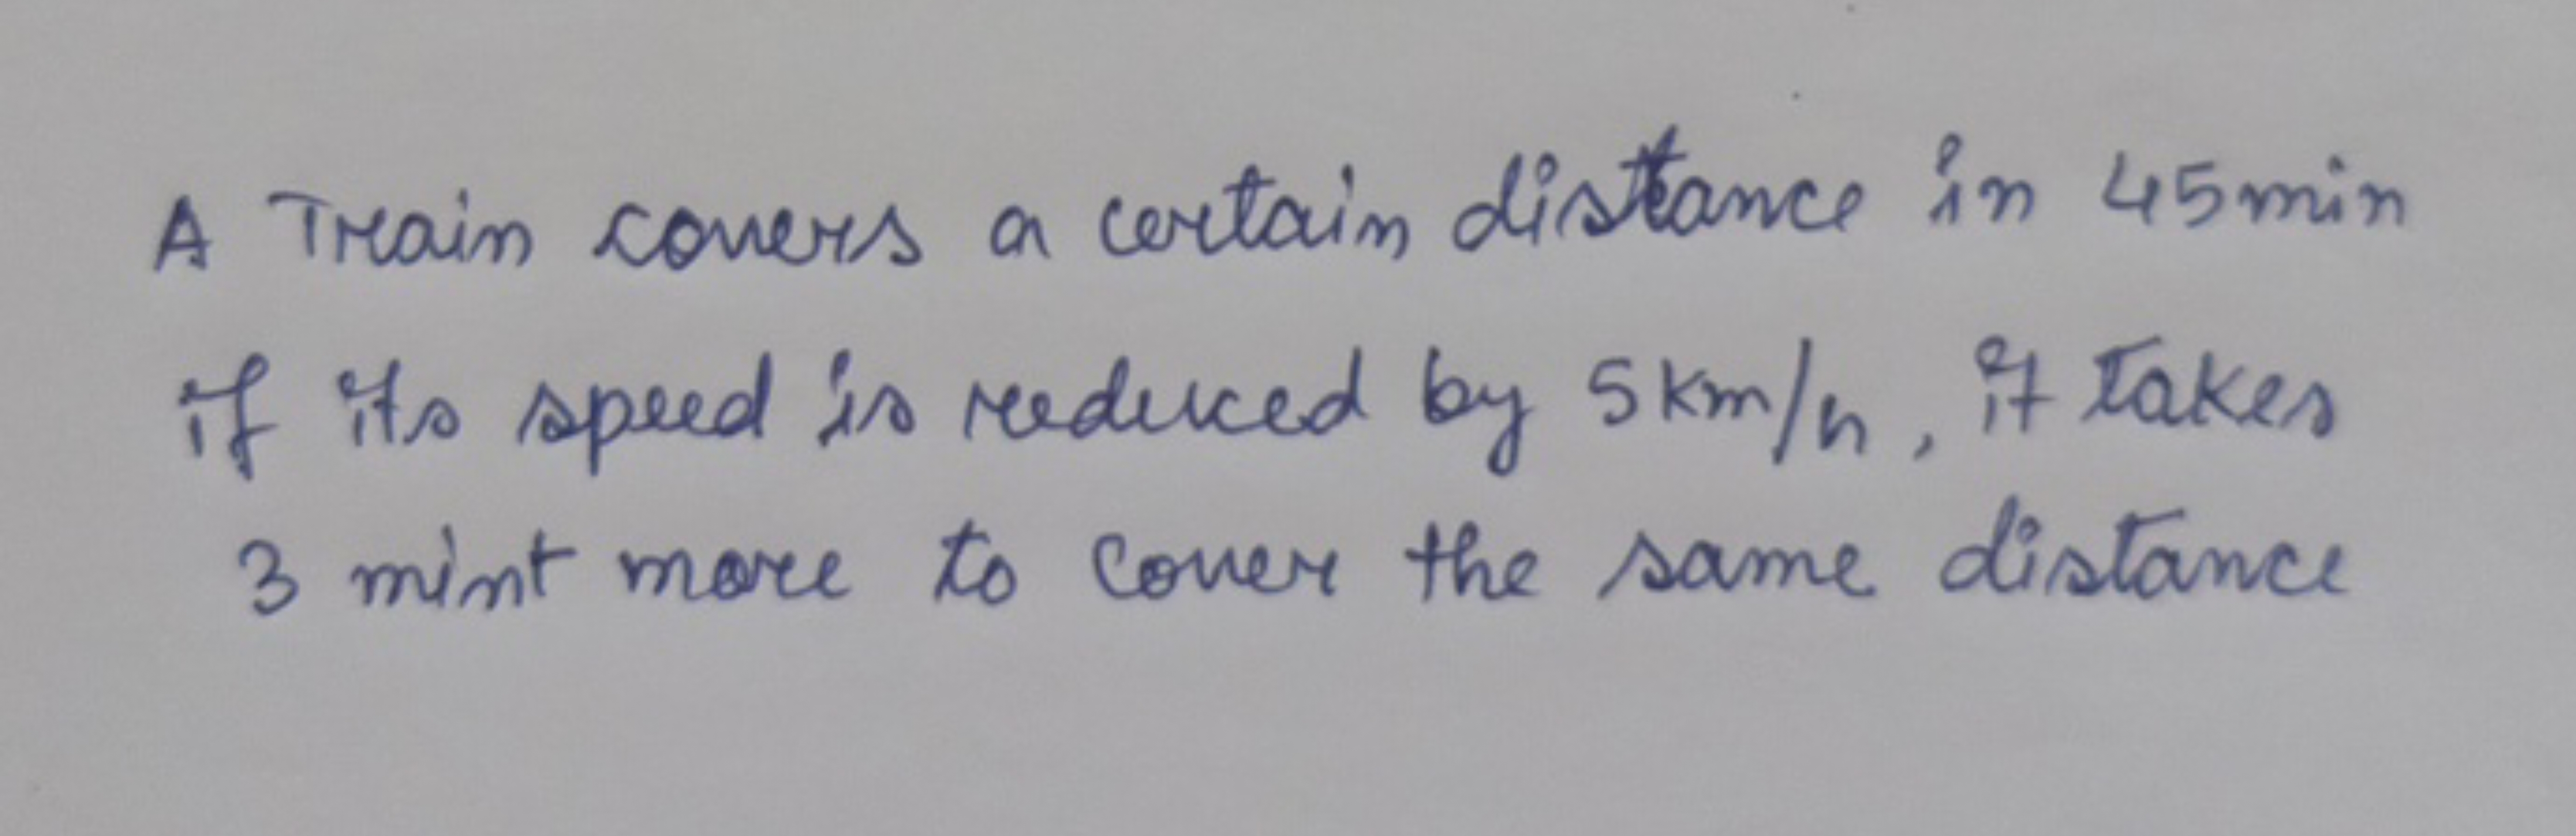 A Train covers a certain distance in 45min
if its speed is reduced by 5km/h, it takes
3 mint more to cover the same distance